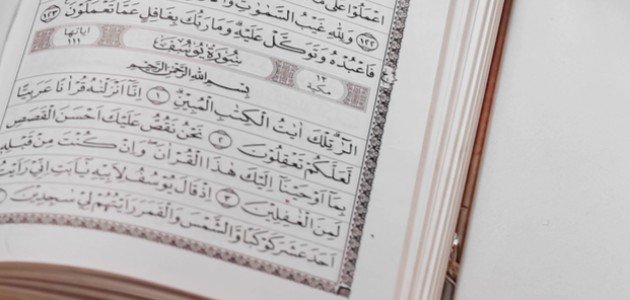 اعْمَلُوا عَلَىٰ
١٢٢ وَلِلّٰهِ غَيْبُ السَّمٰوٰتِ
فَاعْبُدْهُ وَتَوَكَّلْ عَلَيْهِ وَمَا رَبُّكَ بِغَافِلٍ عَمَّا تَعْمَلُونَ ١٢٣
١٢ مكية سُورَةُ يُوسُفَ اياتها ١١١
بِسْمِ اللهِ الرَّحْمٰنِ الرَّحِيمِ
الٓرٰ تِلْكَ اٰيٰتُ الْكِتٰبِ الْمُبِينِ ١ اِنَّآ اَنْزَلْنٰهُ قُرْاٰنًا عَرَبِيًّا
لَعَلَّكُمْ تَعْقِلُونَ ٢ نَحْنُ نَقُصُّ عَلَيْكَ اَحْسَنَ الْقَصَصِ
بِمَآ اَوْحَيْنَآ اِلَيْكَ هٰذَا الْقُرْاٰنَ وَاِنْ كُنْتَ مِنْ قَبْلِهِ
لَمِنَ الْغٰفِلِينَ ٣ اِذْ قَالَ يُوسُفُ لِاَبِيهِ يٰٓاَبَتِ اِنِّي رَاَيْتُ
اَحَدَ عَشَرَ كَوْكَبًا وَالشَّمْسَ وَالْقَمَرَ رَاَيْتُهُمْ لِي سٰجِدِينَ